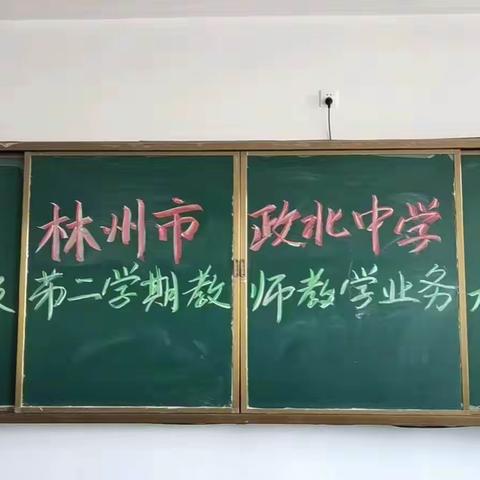 林州市政北中学
第二学期教师教学业务